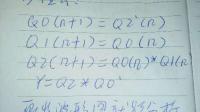 Q0(n+1)=Q2'(n)
Q1(n+1)=Q0(n)
Q2(n+1)=Q0(n)*Q1(n)
Y=Q2*Q0'